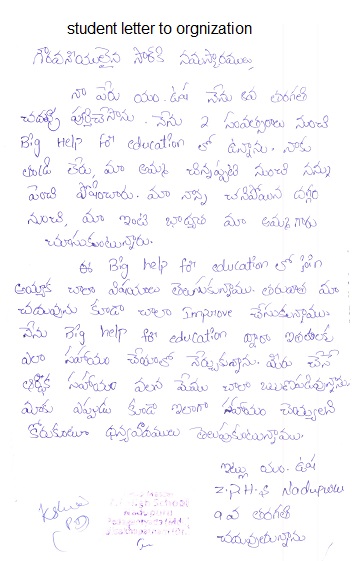 student letter to orgnization
గౌరవనీయులైన సార్‌కి నమస్కారములు
నా పేరు యం. ఉష నేను 8వ తరగతి
చదువు పూర్తిచేసాను. నేను 2 సంవత్సరాలు నుంచి
Big Help for education లో ఉన్నాను. నాకు
తండ్రి లేరు, మా అమ్మ చిన్నప్పటి నుంచి నన్ను
పెంచి పోషించారు. మా నాన్న చనిపోయిన దగ్గర
నుంచి, మా ఇంటి భాద్యత మా అమ్మ గారు
చూసుకుంటున్నారు.
ఈ Big help for education లో join
అయ్యాక చాలా విషయాలు తెలుసుకున్నాము. తరువాత మా
చదువును కూడా చాలా Improve చేసుకున్నాము.
నేను Big help for education ద్వారా ఇతరులకు
ఎలా సహాయం చేయాలో నేర్చుకున్నాను. మీరు చేసే
ఆర్థిక సహాయం వలన మేము చాలా ఋణపడివున్నాము
మీకు ఎప్పుడు కూడా ఇలాగా సహాయం చెయ్యాలని
కోరుకుంటూ ధన్యవాదములు తెలుపుకుంటున్నాము.
ఇట్లు యం. ఉష
Z.P.H.S Nadupuru
9వ తరగతి
చదువుతున్నాను